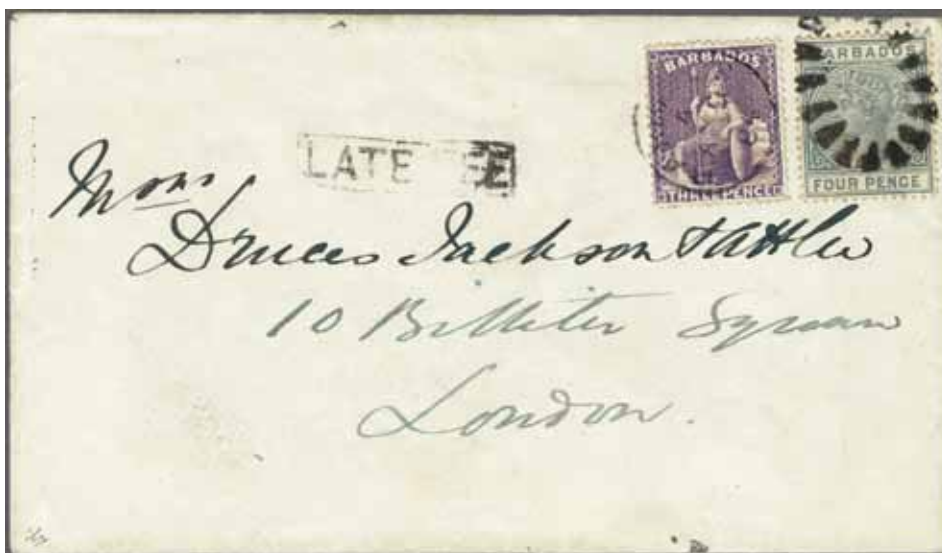 BARBADOS
THREE PENCE
BARBADOS
FOUR PENCE
LATE FEE
Messrs
Druces Jackson & Attlee
10 Billiter Square
London.